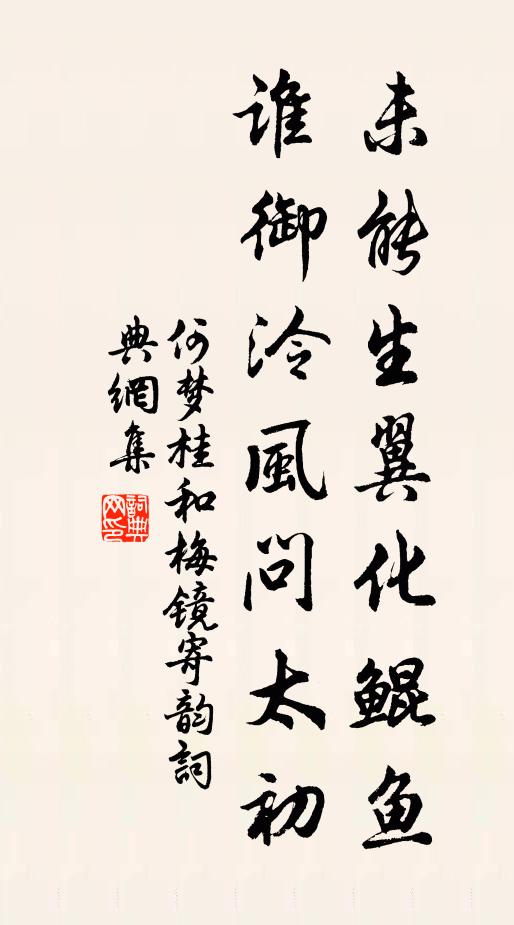 未能生翼化鲲鱼
谁御泠風问太初
何梦桂和梅镜寄韵詞
典網集
詞典网印